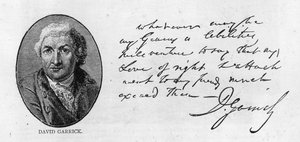 DAVID GARRICK.
whatever may be
my Genius or Celebrity
to say that my
Love of right & attach
ment to my friend much
exceed them —
D. Garrick